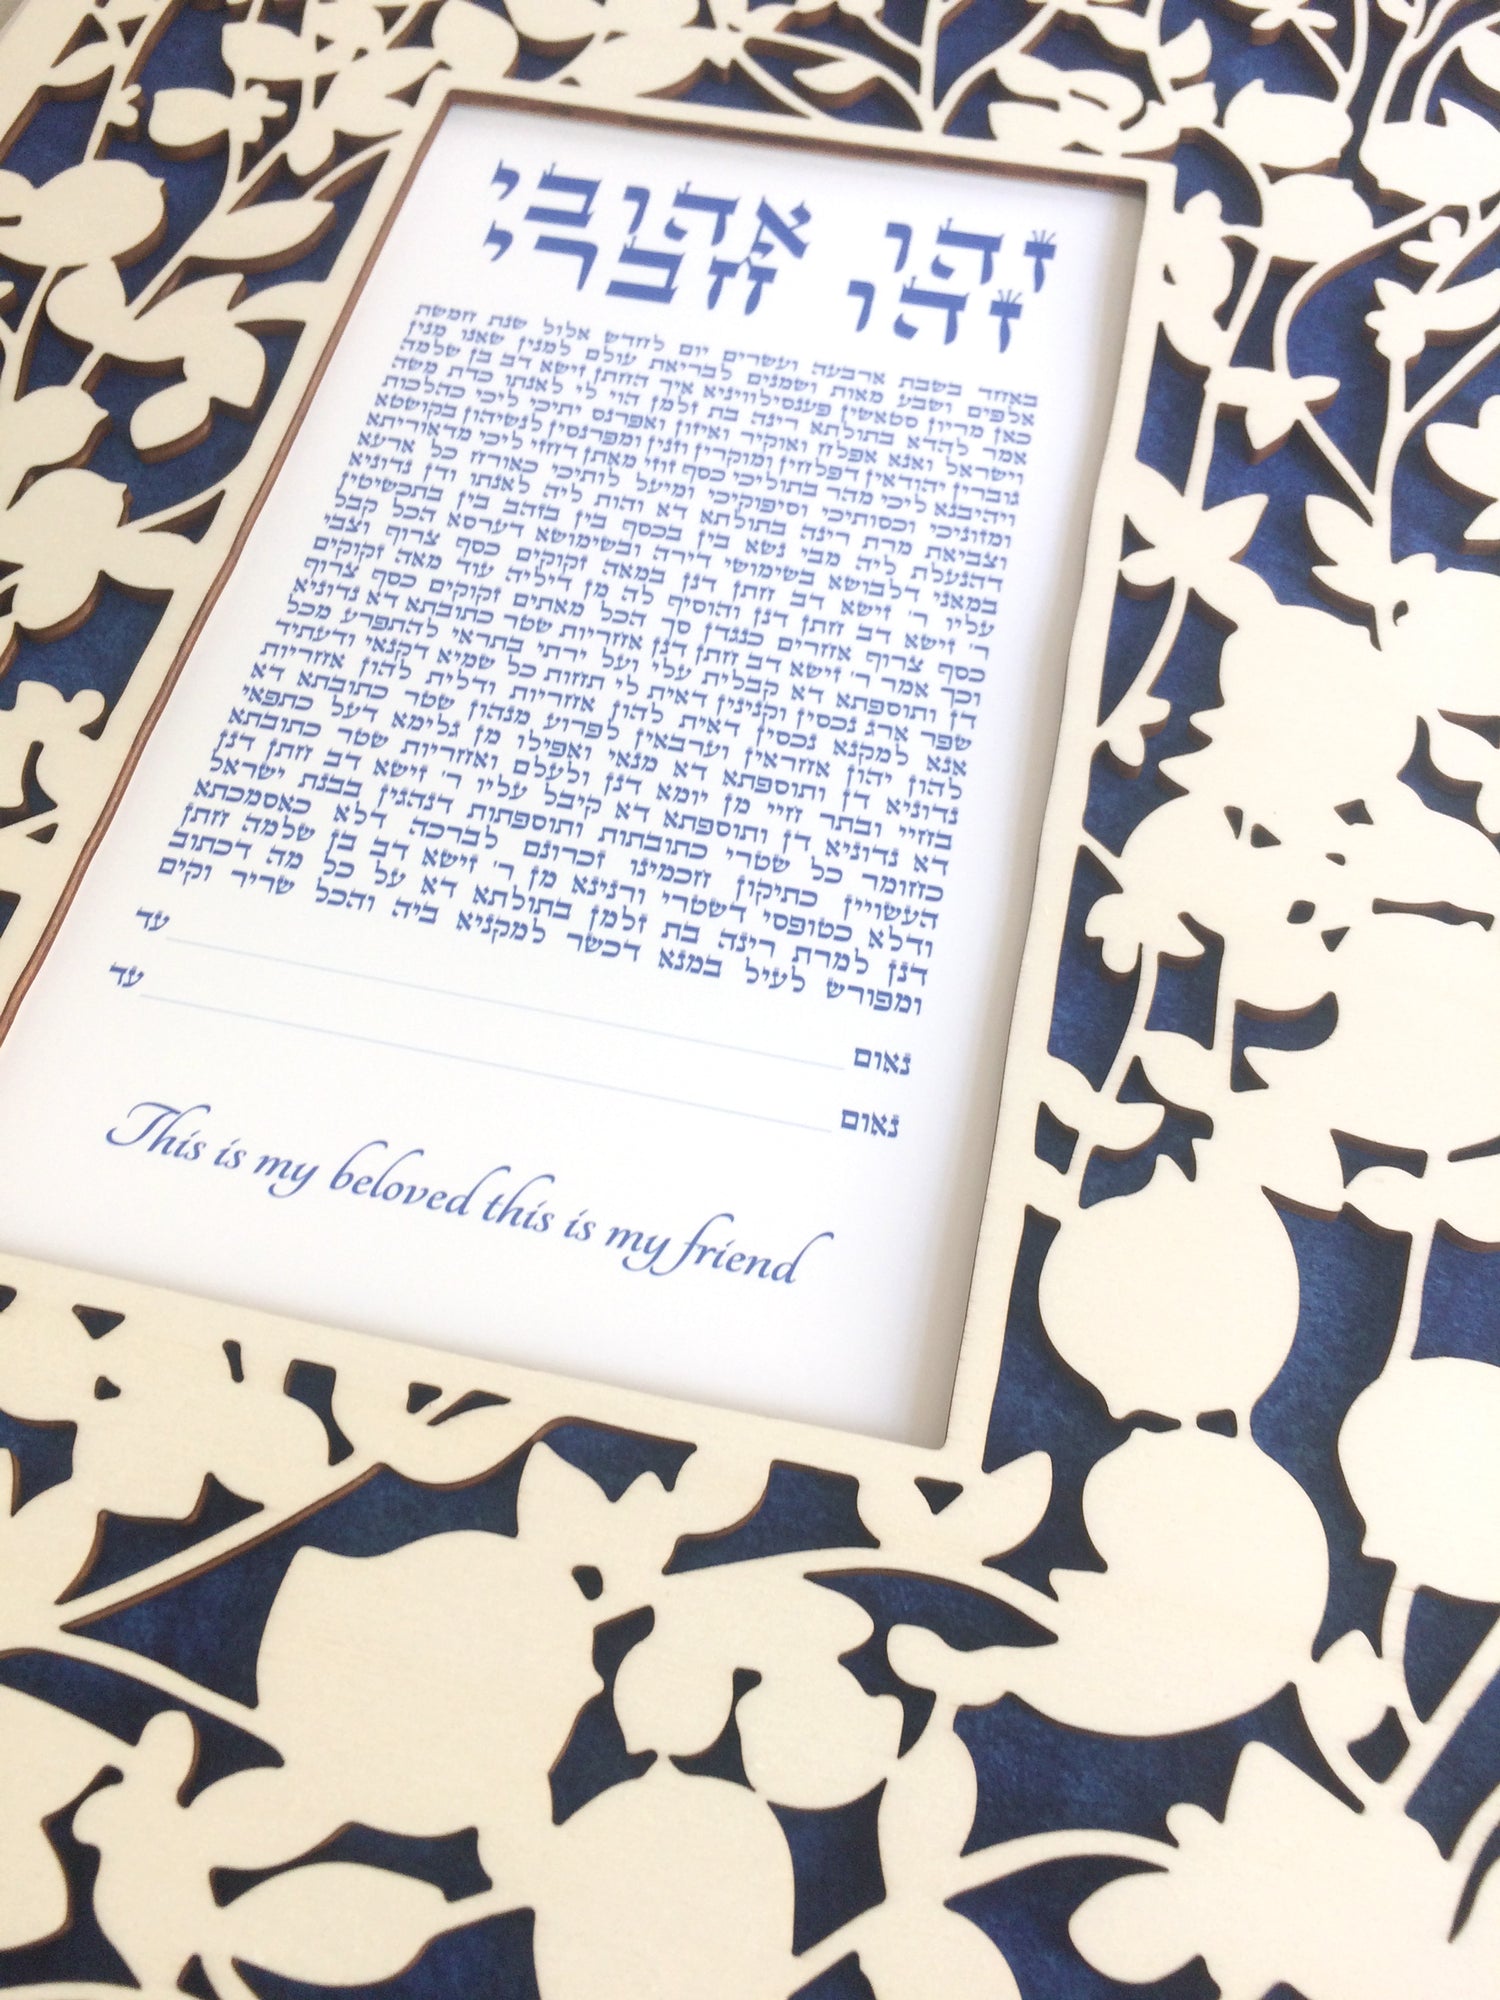 זהו אהובי
וזהו חברי
באחד בשבת ארבעה ועשרים יום לחדש אלול שנת חמשת
אלפים ושבע מאות ושמנים לבריאת עולם למנין שאנו מנין
כאן מריון סטאשין פענסילוויניא איך החתן זישא דב בן שלמה
אמר להדא בתולתא רינה בת זלמן הוי לי לאנתו כדת משה
וישראל ואנא אפלח ואוקיר ואיזון ואפרנס יתיכי ליכי כהלכות
גוברין יהודאין דפלחין ומוקרין וזנין ומפרנסין לנשיהון בקושטא
ויהיבנא ליכי מהר בתוליכי כסף זוזי מאתן דחזי ליכי מדאוריתא
ומזוניכי וכסותיכי וסיפוקיכי ומיעל לותיכי כאורח כל ארעא
וצביאת מרת רינה בתולתא דא והות ליה לאנתו ודן נדוניא
דהנעלת ליה מבי נשא בין בכסף בין בזהב בין בתכשיטין
במאני דלבושא בשימושי דירה ובשימושא דערסא הכל קבל
עליו ר׳ זישא דב חתן דנן במאה זקוקים כסף צרוף וצבי
ר׳ זישא דב חתן דנן והוסיף לה מן דיליה עוד מאה זקוקים
כסף צרוף אחרים כנגדן סך הכל מאתים זקוקים כסף צרוף
וכך אמר ר׳ זישא דב חתן דנן אחריות שטר כתובתא דא נדוניא
דן ותוספתא דא קבלית עלי ועל ירתי בתראי להתפרע מכל
שפר ארג נכסין וקנינין דאית לי תחות כל שמיא דקנאי ודעתיד
אנא למקנא נכסין דאית להון אחריות ודלית להון אחריות
להון יהון אחראין וערבאין לפרוע מנהון שטר כתובתא דא
נדוניא דן ותוספתא דא מנאי ואפילו מן גלימא דעל כתפאי
בחיי ובתר חיי מן יומא דנן ולעלם ואחריות שטר כתובתא
דא נדוניא דן ותוספתא דא קיבל עליו ר׳ זישא דב חתן דנן
כחומר כל שטרי כתובתות ותוספתות דנהגין בבנת ישראל
העשויין כתיקון חכמינו זכרונם לברכה דלא כאסמכתא
ודלא כטופסי דשטרי וקנינא מן ר׳ זישא דב בן שלמה חתן
דנן למרת רינה בת זלמן בתולתא דא על כל מה דכתוב
ומפורש לעיל במנא דכשר למקניא ביה והכל שריר וקים
נאום עד
נאום עד
This is my beloved this is my friend